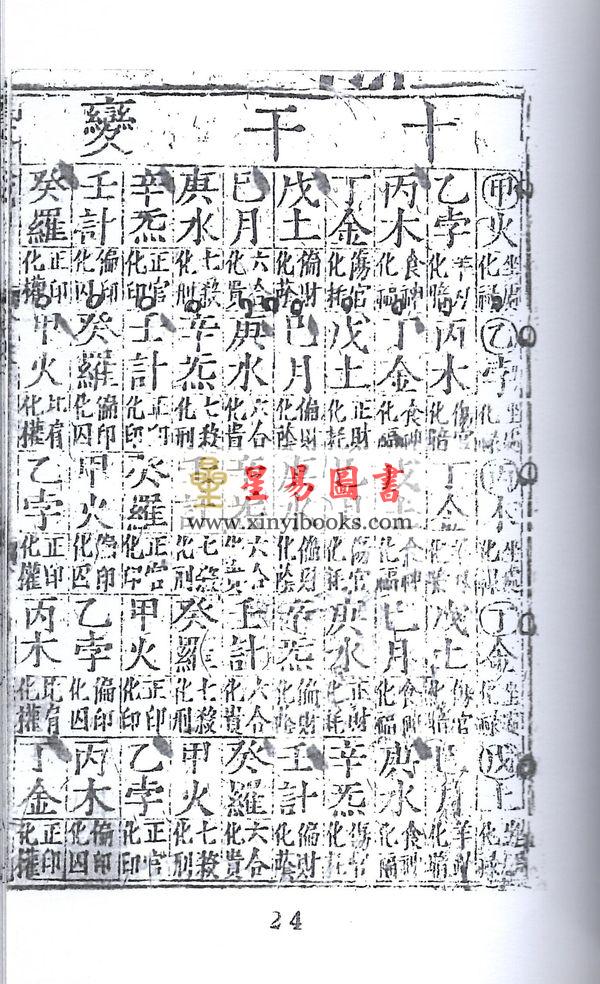 十干變
甲火 坐處化祿
乙孛 羊刃化暗
丙木 食神化福
丁金 傷官化耗
戊土 偏財化蔭
己月 六合化貴
庚水 七殺化刑
辛炁 正官化印
壬計 偏印化囚
癸羅 正印化權
乙孛 坐處化祿
丙木 傷官化暗
丁金 食神化福
戊土 正財化耗
己月 偏財化蔭
庚水 六合化貴
辛炁 七殺化刑
壬計 正印化印
癸羅 偏印化囚
甲火 比肩化權
丙木
丁金
食神化福
傷官化耗
偏財化蔭
六合化貴
七殺化刑
癸羅 正官化印
甲火 偏印化囚
乙孛 正印化權
星易圖書
www.xinyibooks.com
丁金 坐處化祿
戊土 傷官化暗
己月 食神化福
庚水 正財化耗
辛炁 偏財化蔭
壬計 六合化貴
癸羅 七殺化刑
甲火 正印化印
乙孛 偏印化囚
丙木 比肩化權
戊土 化祿
己月 化暗
庚水 食神化福
辛炁 傷官化耗
壬計 偏財化蔭
癸羅 六合化貴
甲火 七殺化刑
乙孛 正官化印
丙木 偏印化囚
丁金 正印化權
24